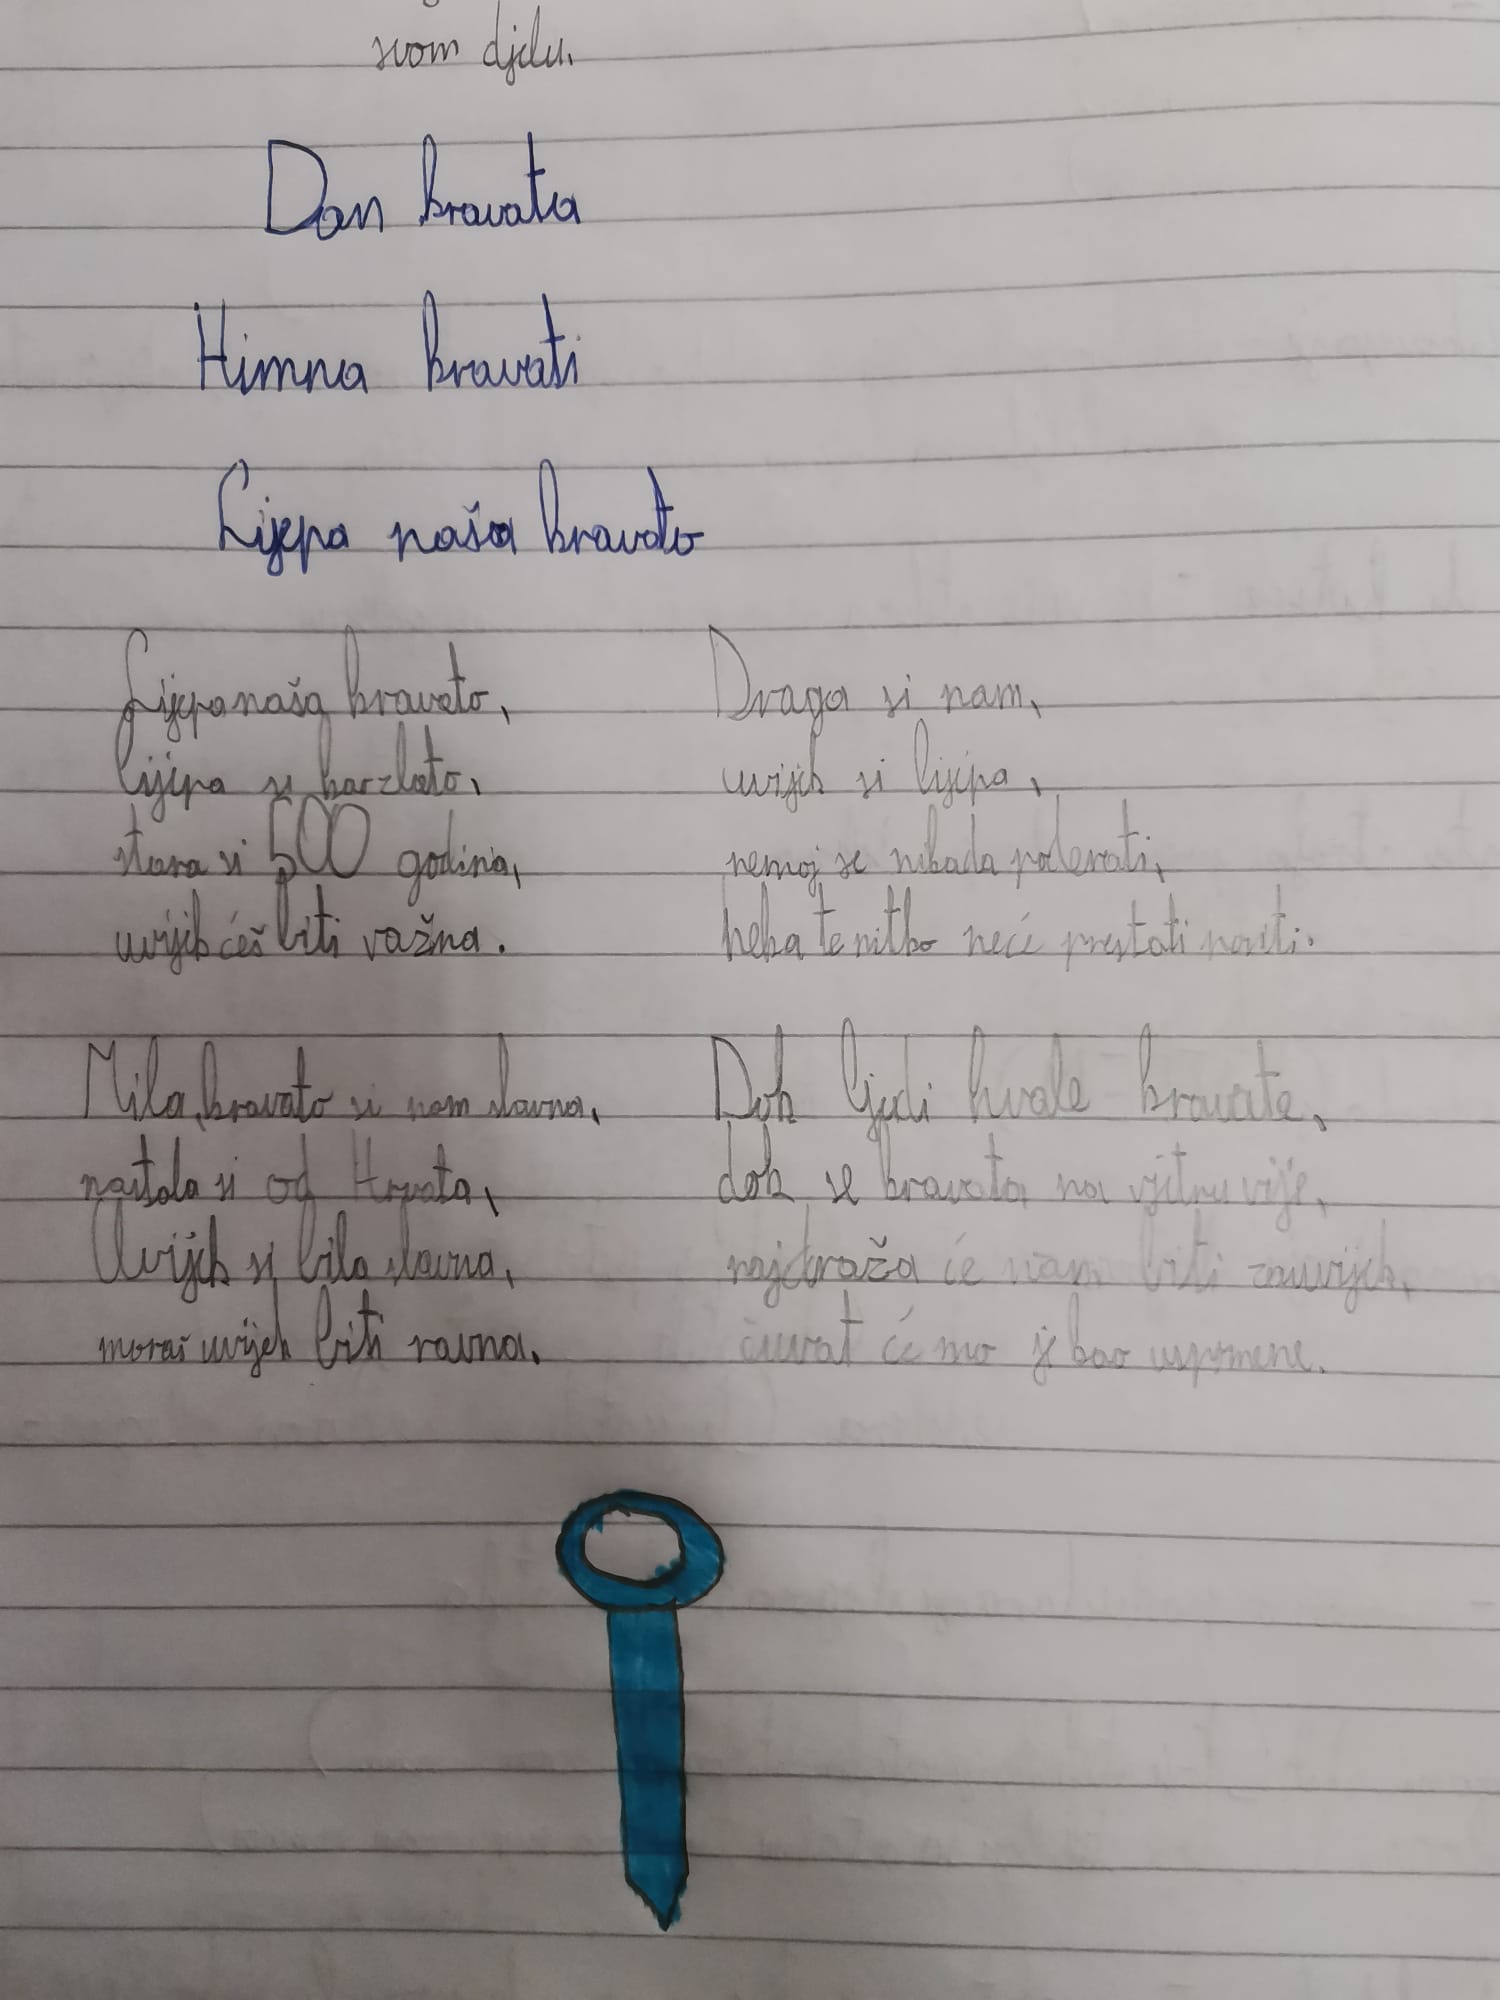 svom djelu.
Dan kravata
Himna kravati
Lijepa naša kravato
Lijepa naša kravato,
lijepa si kao zlato,
stara si 500 godina,
uvijek ćeš biti važna.
Mila, kravato si nam slavna,
nastala si od Hrvata,
Uvijek si bila slavna,
moraš uvijek biti ravna.
Draga si nam,
uvijek si lijepa,
nemoj se nikada poderati,
neka te nitko neće prestati nositi.
Dok ljudi hvale kravate,
dok se kravata na vjetru vije,
najdraža će nam biti zauvijek,
čuvat će mo je kao uspomene.